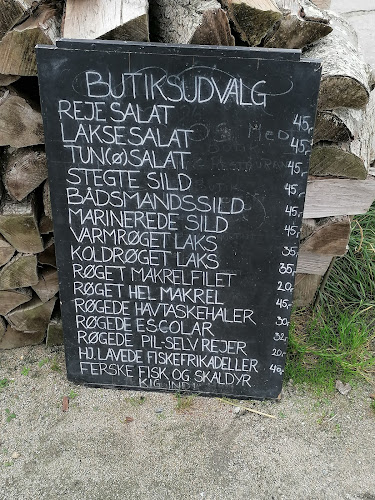 BUTIKSUDVALG
REJESALAT 45,-
LAKSESALAT 45,-
TUN(Ø)SALAT 45,-
STEGTE SILD 45,-
BÅDSMANDSSILD 45,-
MARINEREDE SILD 45,-
VARMRØGET LAKS 35,-
KOLDRØGET LAKS 35,-
RØGET MAKRELFILET 20,-
RØGET HEL MAKREL 45,-
RØGEDE HAVTASKEHALER 30,-
RØGEDE ESCOLAR 32,-
RØGEDE PIL-SELV REJER 20,-
HJ.LAVEDE FISKEFRIKADELLER
FERSKE FISK OG SKALDYR
KIG IND!